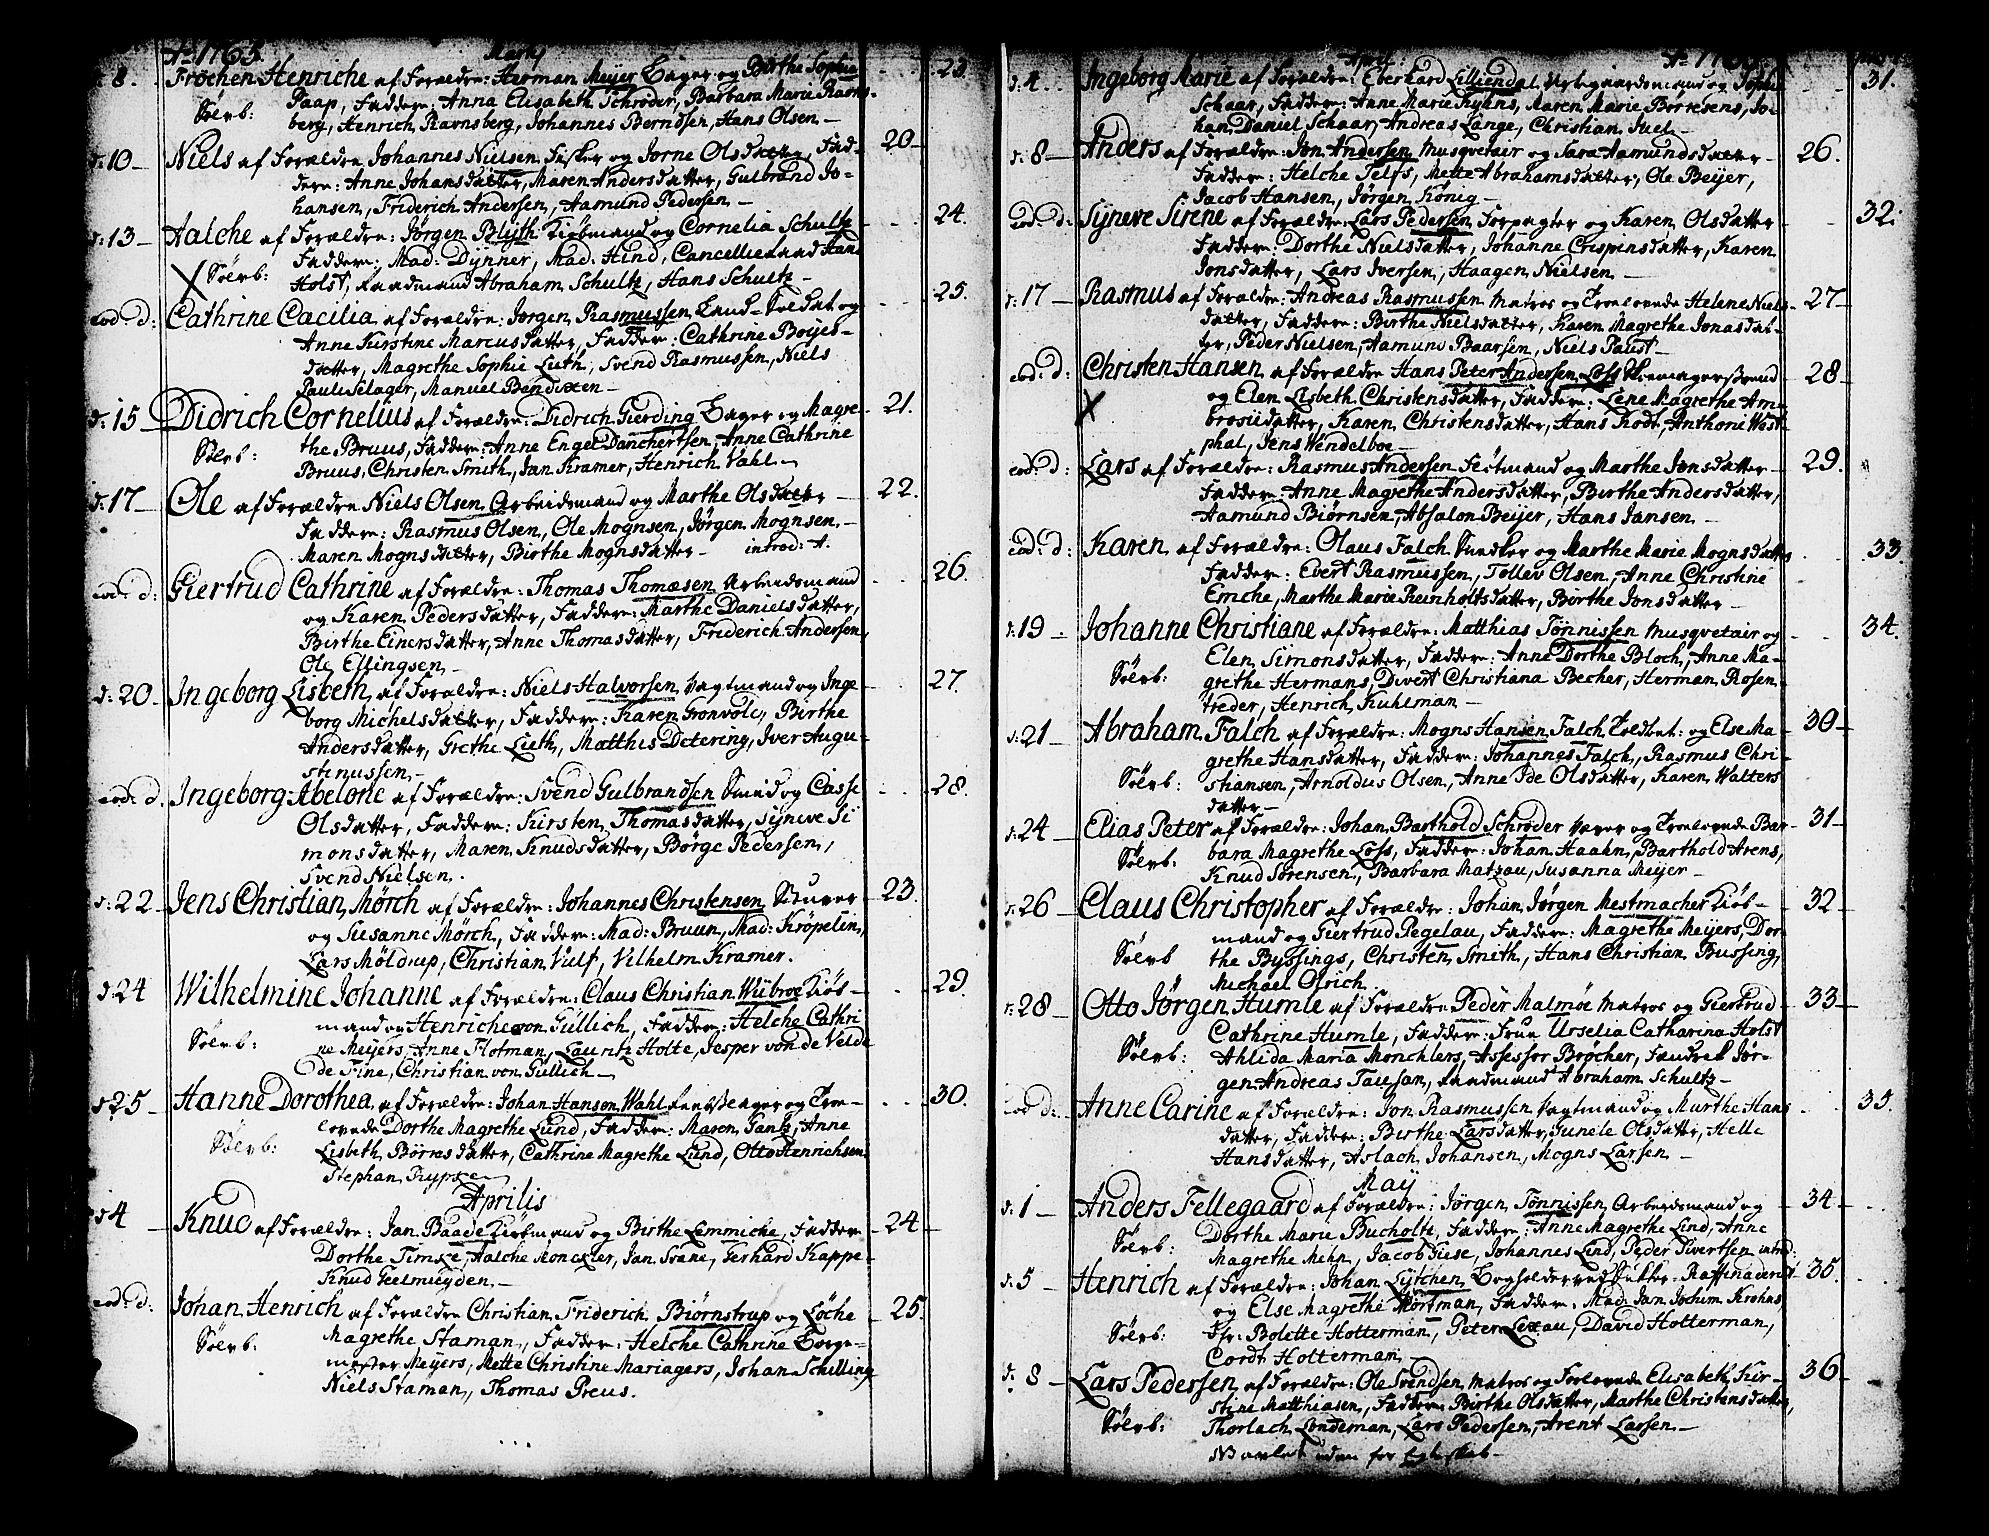 Ao 1765. Martij
d: 8. Frochen Henriche af Forældre: Herman Meyer Bager og Birthe Sophia 23.
Sölvb: Paap, Faddere: Anna Elisabeth Schrøder, Barbara Marie Ravns-
berg, Henrich Ravnsberg, Johannes Berndsen, Hans Olsen.
d: 10 Niels af Forældre Johannes Nielsen Fisker og Jorne Olsdatter, Fad- 20
dere: Anne Johansdatter, Maren Andersdatter, Gulbrand Jo-
hansen, Friderich Andersen, Aamund Pedersen.
d: 13 Aalche af Forældre: Jørgen Blyth Kiøbmand og Cornelia Schultz 24.
Faddere: Mad: Dynner, Mad: Hind, Cancellieraad Hans
X Sölvb: Holst, Raadmand Abraham Schultz, Hans Schultz
eod: d: Cathrine Cæcilia af Forældre: Jørgen Rasmussen Land-Soldat og 25.
Anne Kirstine Marcusdatter, Faddere: Cathrine Boyes-
datter, Magrethe Sophie Luth, Svend Rasmussen, Niels
Pauli Slager, Manuel Bendixen
d: 15 Didrich Cornelius af Forældre: Didrich Gierding Bager og Magre- 21.
Sölvb: the Bruus, Faddere: Anne Engel Danchertsen, Anne Cathrine
Bruus, Christen Smith, Jan Kramer, Henrich Vahl
d: 17 Ole af Forældre Niels Olsen Arbeidsmand og Marthe Olsdatter 22.
Faddere: Rasmus Olsen, Ole Mognsen, Jørgen Mognsen,
Maren Mognsdatter, Birthe Mognsdatter introd: A.
eod: d: Giertrud Cathrine af Forældre: Thomas Thomæsen Arbeidsmand 26.
og Karen Pedersdatter, Faddere: Marthe Danielsdatter,
Birthe Einersdatter, Anne Thomasdatter, Friderich Andersen,
Ole Ellingsen
d: 20 Ingeborg Lisbeth af Forældre: Niels Halvorsen Vagtmand og Inge 27.
borg Michelsdatter, Faddere: Karen Gronvold, Birthe
Andersdatter, Grethe Luth, Matthis Detering, Iver Augu-
stinussen
eod: d. Ingeborg Abelone af Forældre: Svend Gulbrandsen Smed og Cisse 28.
Olsdatter, Faddere: Kirsten Thomasdatter, Syneve Si
monsdatter, Maren Knudsdatter, Børge Pedersen,
Svend Nielsen.
d: 22 Jens Christian Mörch af Forældre: Johannes Christensen Stuver 23.
og Susanne Mörch, Faddere: Mad: Bruun, Mad: Kröpelin,
Lars Möldrup, Christian Vulf, Vilhelm Kramer.
d: 24 Wilhelmine Johanne af Forældre: Claus Christian Wiibroe Kiöb- 29.
mand og Henriche von Güllich, Faddere: Helche Cathri
Sölvb: ne Meyers, Anne Flotman, Lauritz Holte, Jesper von de Velde
de Fine, Christian von Gullich
d 25 Hanne Dorothea af Forældre: Johan Hansen Wahl og Tro- 30.
lovede Dorthe Magrethe Lund, Faddere: Maren Gantz, Anne
Sölvb: Lisbeth Börresdatter, Cathrine Magrethe Lund, Otto Henrichsen,
Stephan Rypke
Aprilis
d 4 Knud af Forældre: Jan Baade Kiøbmand og Birthe Lemmiche, Faddere 24
Dorthe Timke, Aalche Moncher, Jan Svane, Gerhard Kappe-
Knud Geelmuyden.
eod: d: Johan Henrich af Forældre Christian Friderich Biørnstrup og Löche 25.
Sölvb: Magrethe Staman, Faddere: Helche Cathrine Borge-
mester Meyers, Mette Christine Mariagers, Johan Schilling
Niels Staman, Thomas Preus.
April: Ao 1765.
d: 4. Ingeborg Marie af Forældre: Eberhard Lilliendal og Sophie 31.
Schaar, Faddere: Anne Marie Kyhns, Maren Marie Borresens, Jo-
han Daniel Schaar, Andreas Lange, Christian Juel
d: 8 Anders af Forældre: Jon Andersen Musqvetair og Sara Aamundsdatter 26.
Faddere: Helche Telfs, Mette Abrahamsdatter, Ole Beyer,
Jacob Hansen, Jørgen König
eod: d: Syneve Sirene af Forældre Lars Pedersen Forpagter og Karen Olsdatter 32.
Faddere: Dorthe Nielsdatter, Johanne Crispinsdatter, Karen
Jonsdatter, Lars Iversen, Haagen Nielsen
d: 17 Rasmus af Forældre: Andreas Rasmussen Matros og Trolovede Helene Niels 27
datter, Faddere: Birthe Nielsdatter, Karen Magrethe Jonasdat-
ter, Peder Nielsen, Aamund Baarsen, Niels Paust
eod: d: Christen Hansen af Forældre Hans Peter Andersen Loss Skomagersvend 28
X og Elen Lisbeth Christensdatter, Faddere: Lene Magrethe Am-
brosiidatter, Karen Christensdatter, Hans Kodt, Anthoni West-
phal, Jens Wendelboe
eod: d: Lars af Forældre: Rasmus Andersen Feötmand og Marthe Jonsdatter 29.
Faddere: Anne Magrethe Andersdatter, Birthe Andersdatter,
Aamund Biørnsen, Absalon Beyer, Hans Jansen
eod: d: Karen af Forældre: Olaus Falch Snedker og Marthe Marie Mognsdatter 33
Faddere: Evert Rasmussen, Tollev Olsen, Anne Christine
Emche, Marthe Marie Reinholtsdatter, Birthe Jonsdatter
d: 19 Johanne Christiane af Forældre: Matthias Tönnissen Musqvetair og 34.
Elen Simonsdatter, Faddere: Anne Dorthe Bloch, Anne Ma-
Sölvb: grethe Hermans, Divert Christiana Becher, Herman Rosen-
treder, Henrich Kuhlman
d: 21 Abraham Falch af Forældre: Mogns Hansen Falch og Else Ma- 30
grethe Hansdatter, Faddere: Johannes Falch, Rasmus Chri-
Sölvb: stiansen, Arnoldus Olsen, Anne Ide Olsdatter, Karen Walters
datter
d: 24 Elias Peter af Forældre: Johan Barthold Schrøder og Trolovede Bar- 31
Sölvb: bara Magrethe Loss, Faddere: Johan Haahn, Barthold Arens,
Knud Sørensen, Barbara Matzau, Susanna Meyer
d: 26 Claus Christopher af Forældre: Johan Jørgen Mestmacher Kiöb- 32
mand og Giertrud Pegelau, Faddere: Magrethe Meyers, Dor-
Sölvb the Byssings, Christen Smith, Hans Christian Brussing,
Michael Olrich
d: 28 Otto Jørgen Humle af Forældre Peder Malmöe Matros og Giertrud 33
Cathrine Humle, Faddere: Frue Urselia Catharina Holst
Sölvb: Ahlida Maria Monchlers, Assessor Bröcher, Fændrek Jør-
gen Andreas Tausan, Raadmand Abraham Schultz
eod: d: Anne Carine af Forældre: Jon Rasmussen Vagtmand og Marthe Hans 35.
datter, Faddere: Birthe Larsdatter, Gunele Olsdatter, Helle
Hansdatter, Aslach Johansen, Mogns Larsen
May
d: 1 Anders Fellegaard af Forældre: Jørgen Tönnissen Arbeidsmand og 34
Sölvb: Dorthe Marie Bucholtz, Faddere: Anne Magrethe Lind, Anne
Magrethe Mehn, Jacob Giese, Johannes Lind, Peder Sivertsen introd:
d: 5 Henrich af Forældre: Johan Lytchen Bogholder ved Sukker-Raffinaderiet 35.
og Else Magrethe Mortman, Faddere: Mad: Jan Jochim Krohns,
Sölvb: Jfr: Bolette Holterman, Peter Lexau, David Holterman,
Cordt Holterman
d: 8 Lars Pedersen af Forældre: Ole Svendsen Matros og Forlovede Elisabeth Kir- 36
stine Matthiasen, Faddere Birthe Olsdatter, Marthe Christensdatter,
Sölvb: Thorlach Londeman, Lars Pedersen, Arent Larsen
NB avlet uden for Egteskab